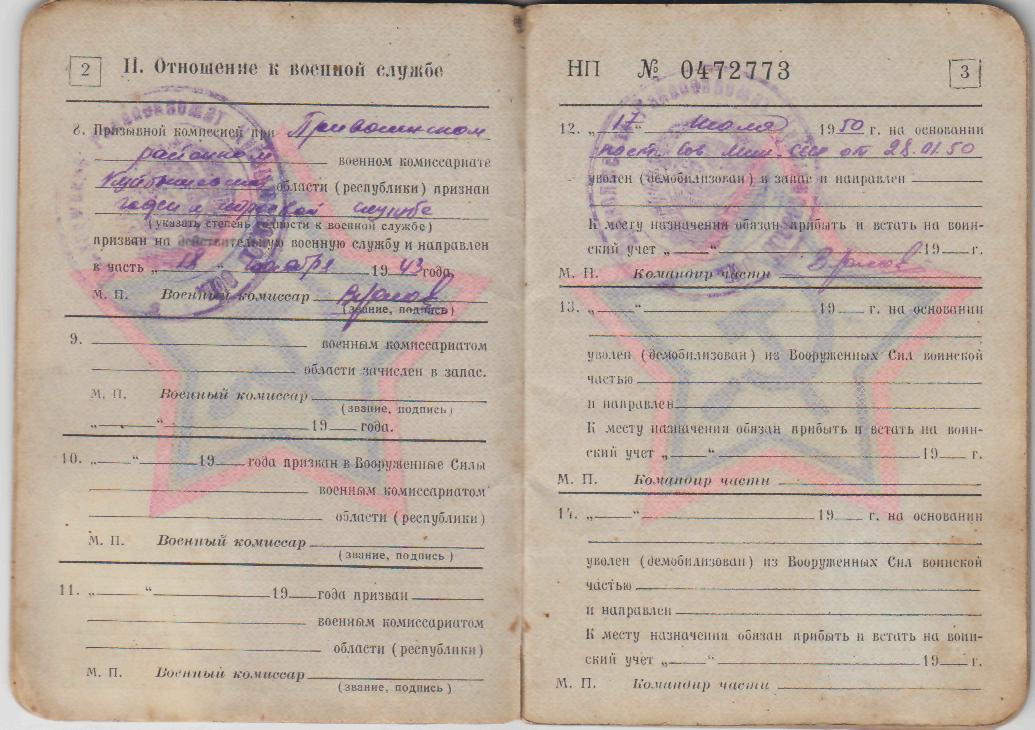 2
II. Отношение к военной службе
8. Призывной комиссией при Приволжском
районном военном комиссариате
Куйбышевской области (республики) признан
годен к строевой службе
(указать степень годности к военной службе)
призван на действительную военную службу и направлен
в часть „ 18 “ 19 43 года,
М. П. Военный комиссар
(звание, подпись)
9. военным комиссариатом
области зачислен в запас.
М. П. Военный комиссар
(звание, подпись)
„ “ 19 года.
10. „ “ 19 года призван в Вооруженные Силы
военным комиссариатом
области (республики)
М. П. Военный комиссар
(звание, подпись)
11. „ “ 19 года призван
военным комиссариатом
области (республики)
М. П. Военный комиссар
(звание, подпись)
НП № 0472773
3
12. „ 17 “ Июля 19 50 г. на основании
пост. Сов. Мин. ССР от 28.01.50
уволен (демобилизован) в запас и направлен
К месту назначения обязан прибыть и встать на воин-
ский учет „ “ 19 г.
М. П. Командир части
13. „ “ 19 г. на основании
уволен (демобилизован) из Вооруженных Сил воинской
частью
и направлен
К месту назначения обязан прибыть и встать на воин-
ский учет „ “ 19 г.
М. П. Командир части
14. „ “ 19 г. на основании
уволен (демобилизован) из Вооруженных Сил воинской
частью
и направлен
К месту назначения обязан прибыть и встать на воин-
ский учет „ “ 19 г.
М. П. Командир части